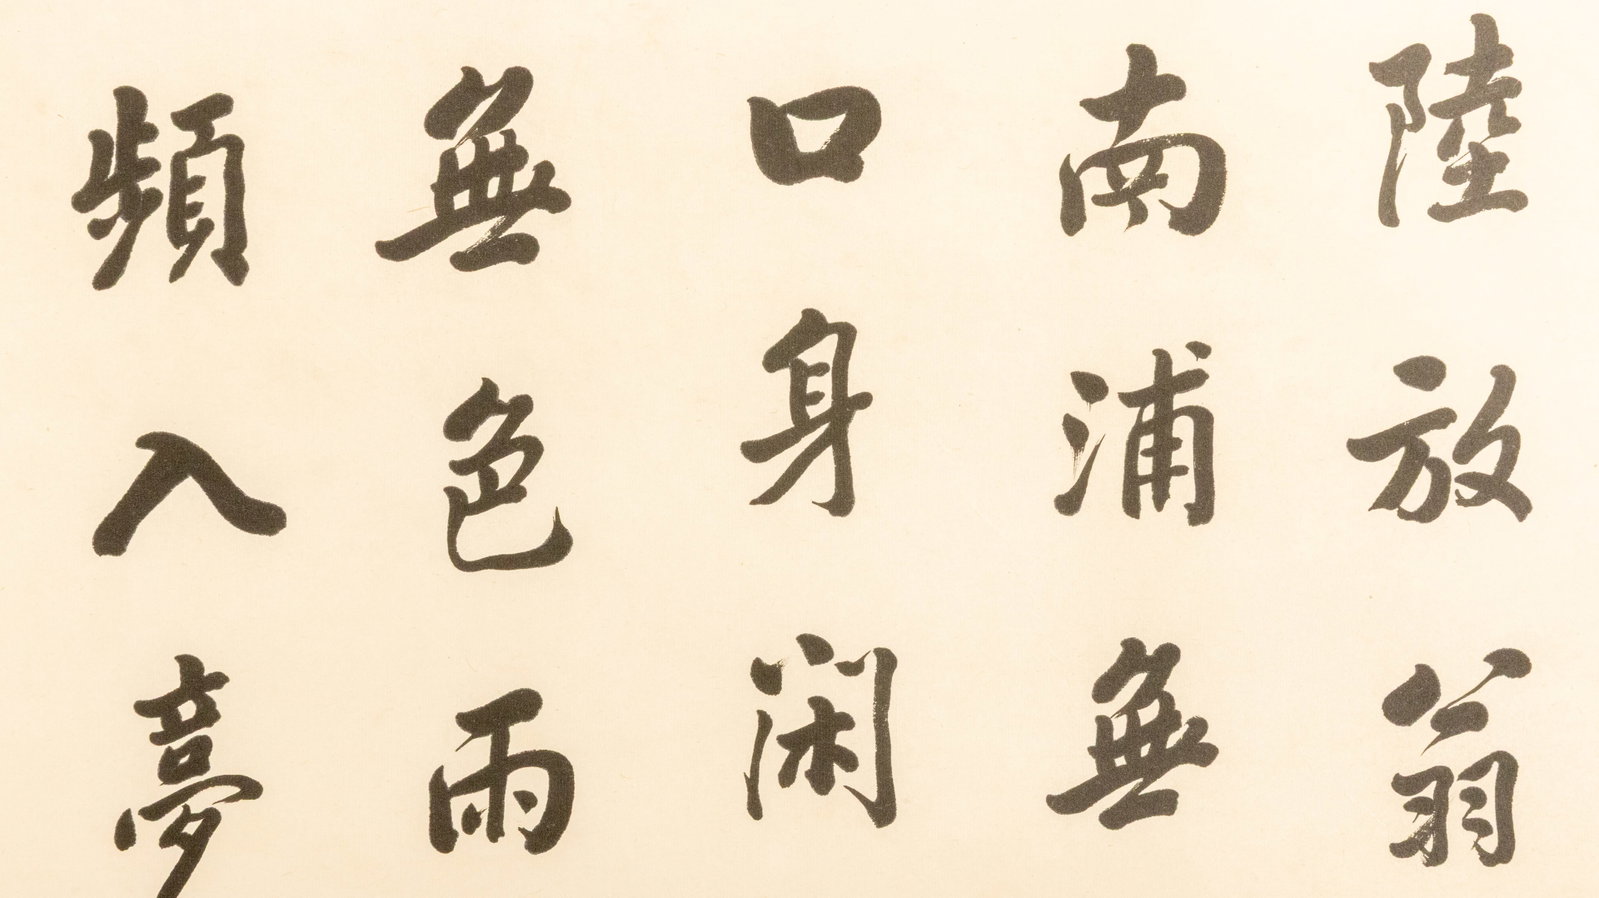 陸放翁
南浦無
口身閑
無色雨
頻入夢